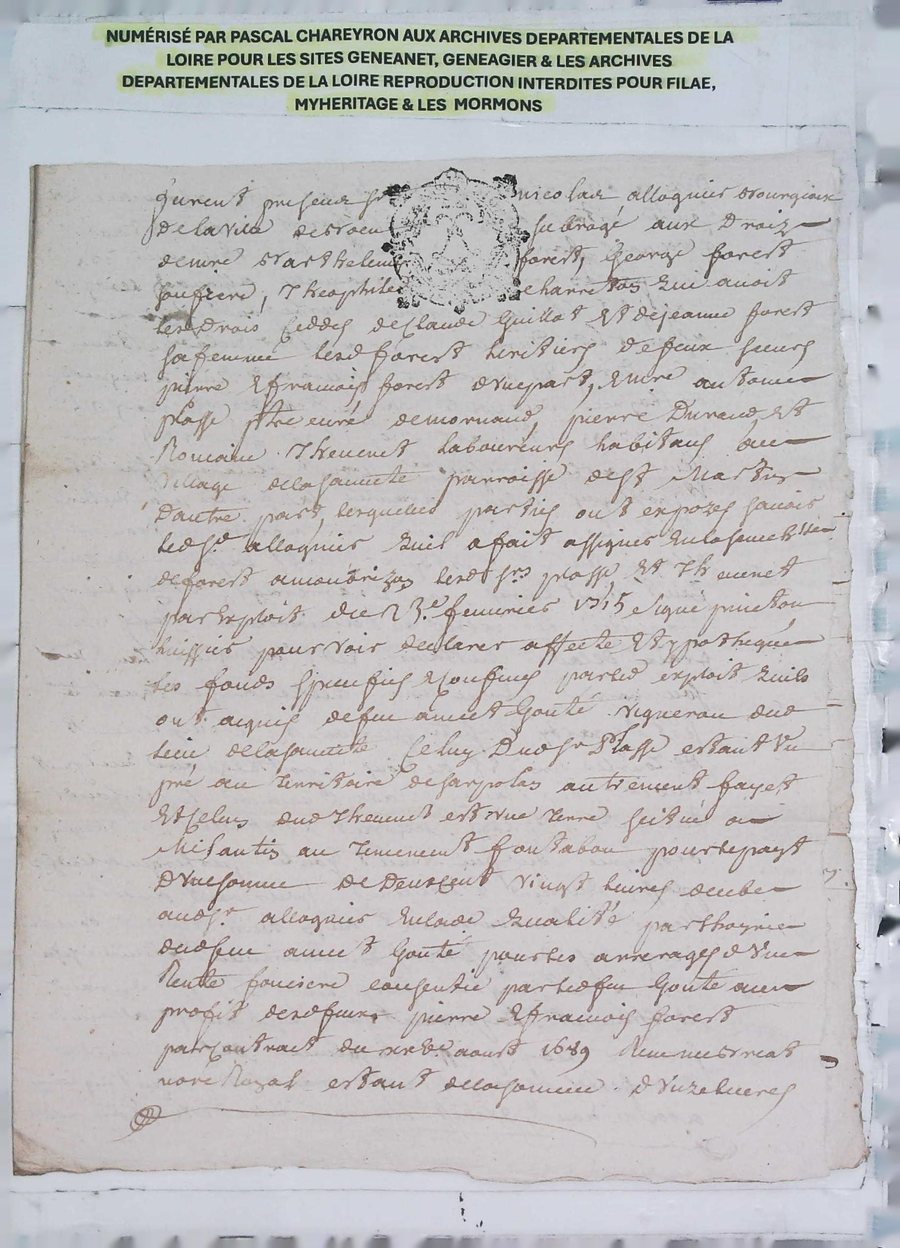 NUMÉRISÉ PAR PASCAL CHAREYRON AUX ARCHIVES DEPARTEMENTALES DE LA
LOIRE POUR LES SITES GENEANET, GENEAGIER & LES ARCHIVES
DEPARTEMENTALES DE LA LOIRE REPRODUCTION INTERDITES POUR FILAE,
MYHERITAGE & LES MORMONS
furent nicolas alloquies bourgiois
de la ville subrogé aux Droiz
de mre barthelemi forest, George forest
son frere, Theophile charreton qui avoit
les Drois Ceddes de Claude Guillot et de jeanne forest
sa femme lesd forest heritiers de feux sieurs
pierre & francois forest d'une part, & mre antoine
plasse ptre curé de mornand, pierre Durand et
Romain Thevenet laboureurs habitans du
village de la parroisse de st Martin
d'autre part, lesquelles parties ont exposés savoir
led sr alloquies quil a fait assigner en la
de forest a montbrizon lesd srs plasse et Thevenet
par exploit du 23e feuvrier 1715 signé
huissier pour voir declarer affecte et ypothequé
les fonds speciffies & confines par led exploit quils
ont acquis de feu amet Gouté vigneron dud
lieu de la Celuy Dud sr Plasse estant un
pré au Territoire de autrement fayet
et celuy dud Thevenet est une Terre scituée a
au Tenement fontabon pour le payt
D'une somme de Deux Cent vingt livres deube
aud sr alloquies en lade qualité par
dud feu amet Gouté pour les arrerages d'une
Rente fonciere consentie par led feu Gouté au
profit desd feux pierre & francois forest
par Contrat du aoust 1689
nore Royal estant de la somme d'unze livres